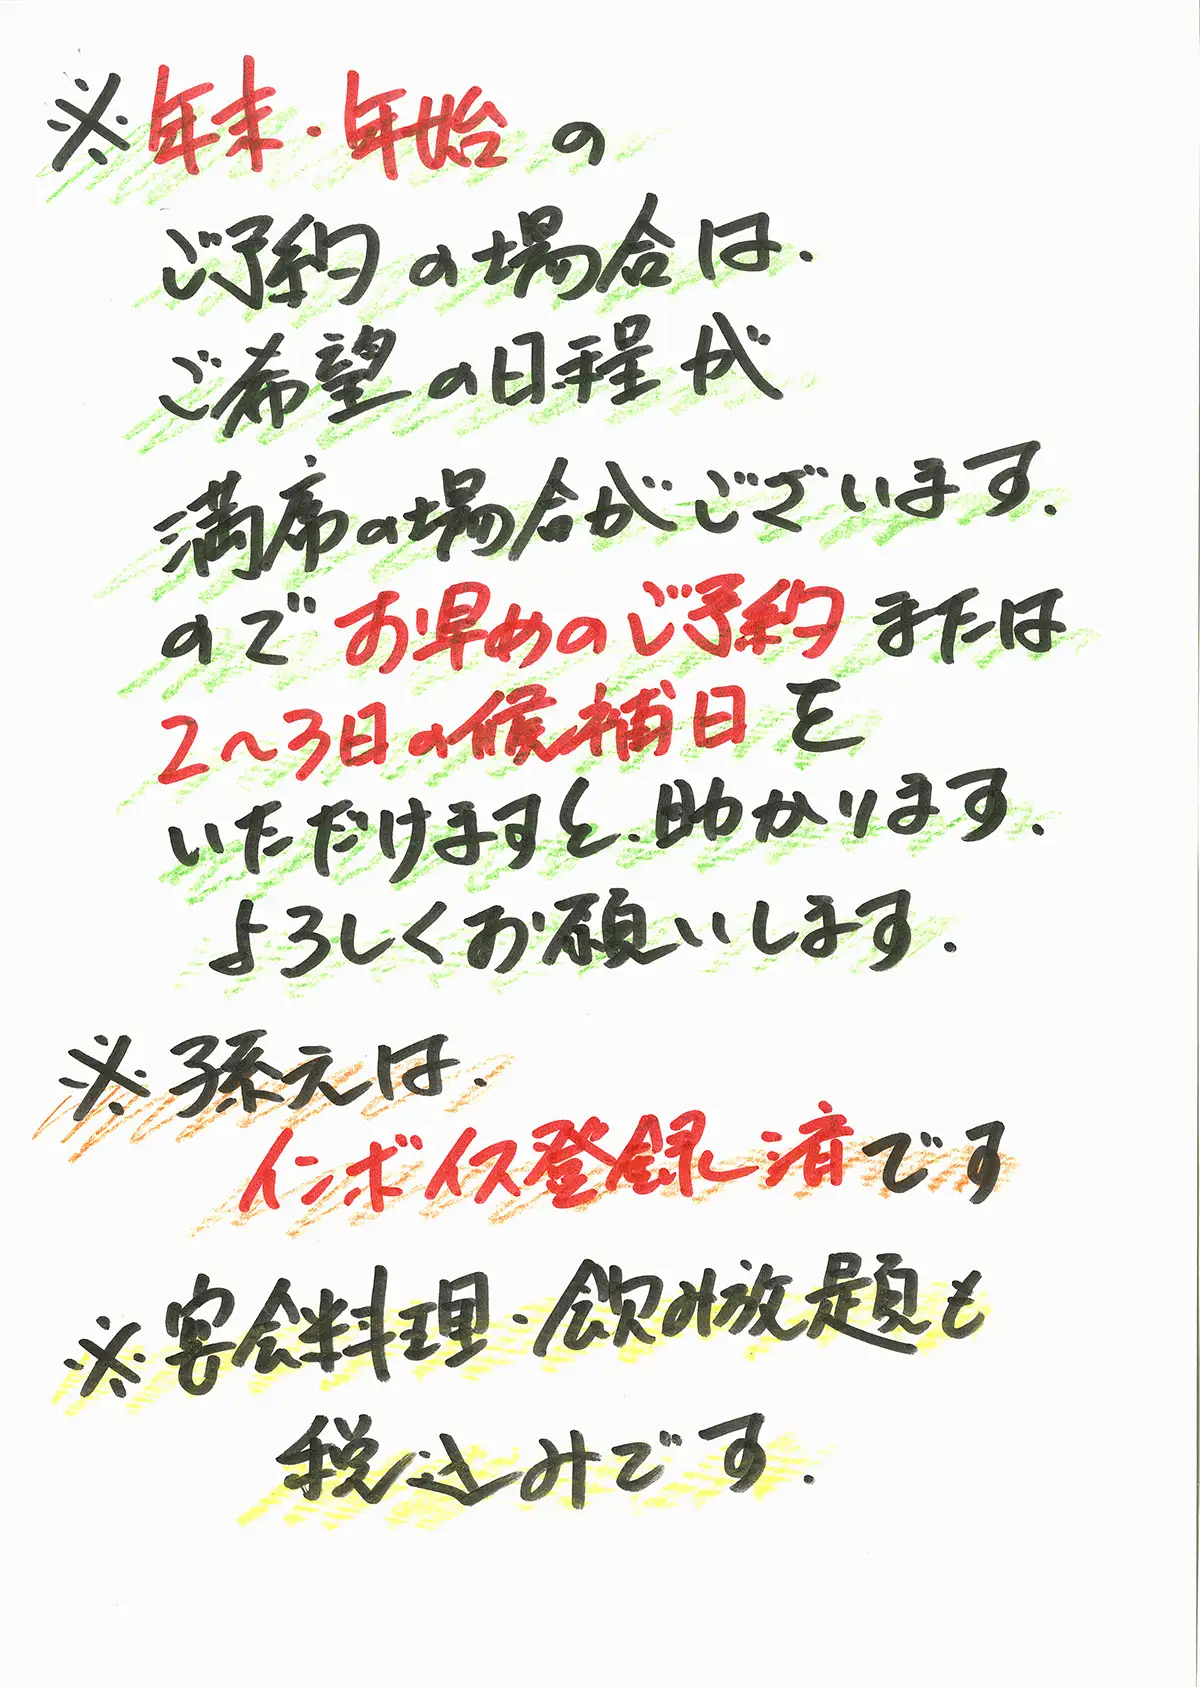 ※年末・年始の
ご予約の場合は.
ご希望の日程が
満席の場合がございます.
のでお早めのご予約または
2〜3日の候補日を
いただけますと.助かります.
よろしくお願いします.
※孫えは.
インボイス登録済です
※宴会料理・飲み放題も
税込みです.